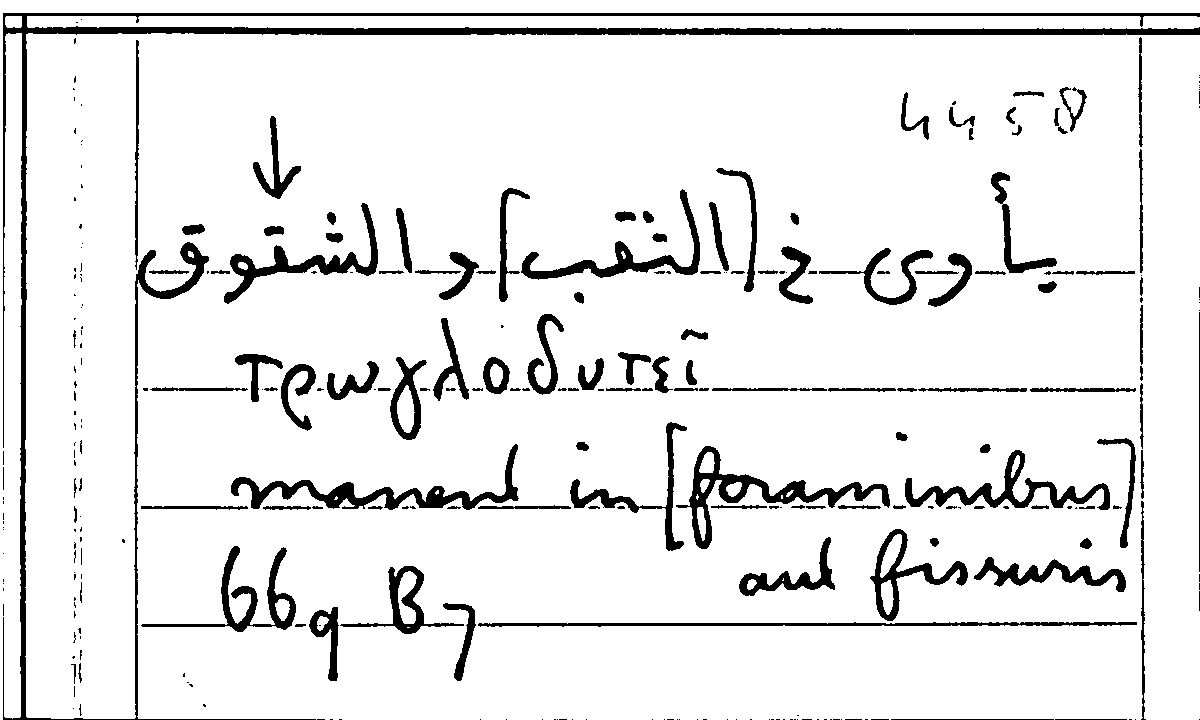 4458
↓
يأوى فى [الثقب] و الشقوق
τρωγλοδυτεῖ
manent in [foraminibus]
aut fissuris
669 B7